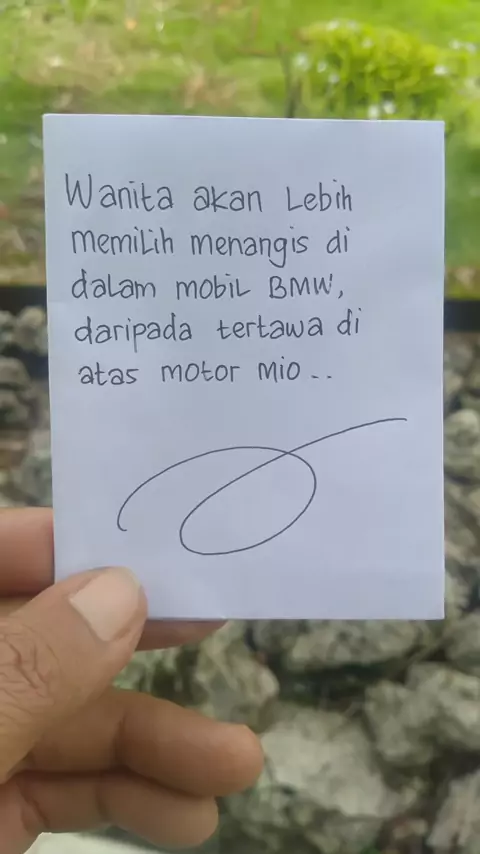 Wanita akan Lebih
memiLih menangis di
daLam mobiL BMW,
daripada tertawa di
atas motor mio...